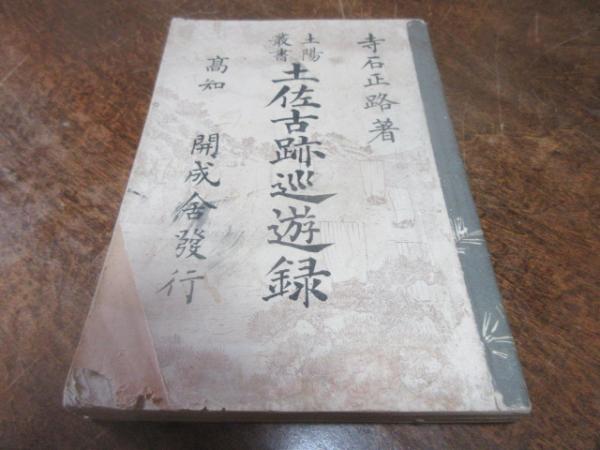 寺石正路著
土陽
叢書
土佐古跡巡遊録
高知 開成舍發行